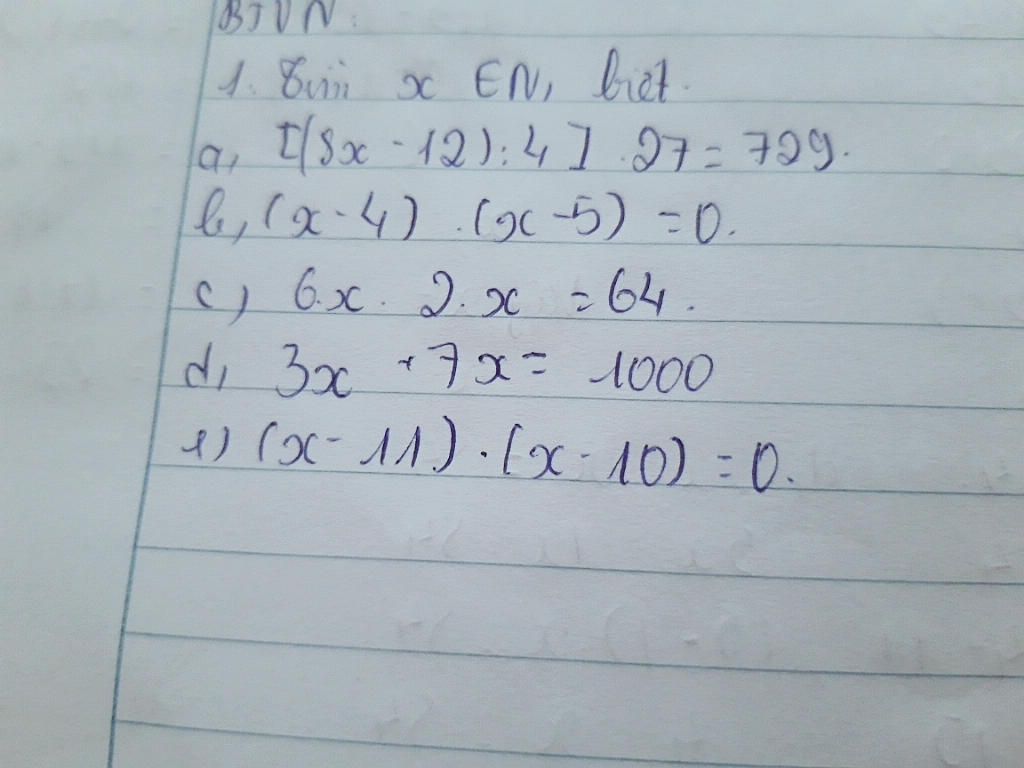 BTVN:
1. Tìm x ∈ N, biết.
a, [(8x - 12) : 4] . 27 = 729.
b, (x - 4) . (x - 5) = 0.
c, 6.x . 2.x = 64.
d, 3x + 7x = 1000
e) (x - 11) . (x - 10) = 0.